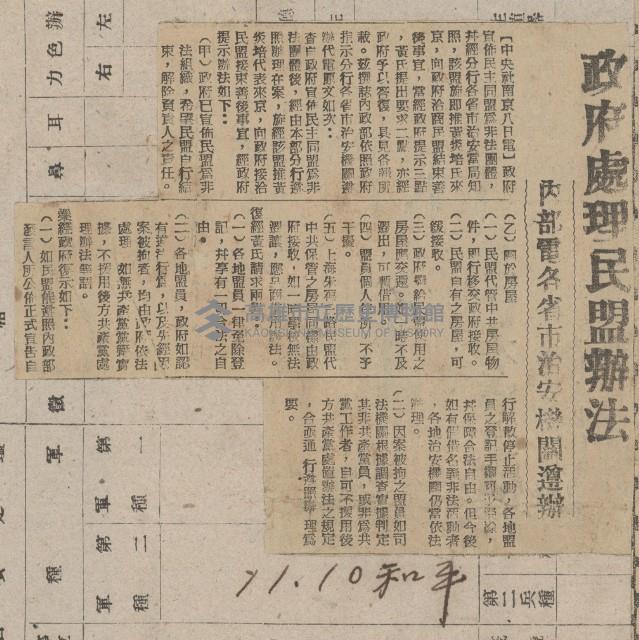 政府處理民盟辦法
內部電各省市治安機關遵辦
【中央社南京八日電】政府
宣佈民主同盟為非法團體，
并經分行各省市治安當局知
照，該盟旋即推黃炎培氏來
京，向政府洽商民盟結束善
後事宜，當經政府提示三點
，黃氏提出要求二點，亦經
政府予以答復，具見各報所
載。茲撰誌內政部依照政府
指示分行各省市治安機關遵
辦代電原文如次：
查自政府宣佈民主同盟為非
法團體後，經由本部分行遵
照辦理在案，旋經該盟推黃
炎培代表來京，向政府接洽
民盟結束善後事宜，經政府
提示辦法如下：
（甲）政府已宣佈民盟為非
法組織，希望民盟自行結
束，解除負責人之責任。
（乙）關於房屋
（一）民盟代管中共房屋物
件，即行移交政府接收。
（二）民盟自有之房屋，可
緩接收。
（三）政府撥給民盟使用之
房屋應交還。如一時不及
遷出，可暫借用
（四）盟員個人住宅，不予
干擾。
（五）上海朱葆三路民盟代
中共保管之房屋同樣由政
府接收，如一時眷屬無法
遷讓，應另商借用辦法。
復經黃氏請求兩點：
（一）各地盟員一律免除登
記，并享有合法之自
由。
（二）各地盟員，政府如認
有違法行為，以及先經因
案被拘者，均由政府依法
處理，如無共產黨黨籍實
據，不援用後方共產黨處
理辦法辦罰。
業經政府復示如下：
（一）如民盟能遵照內政部
發言人所公佈正式宣告自
行解散停止活動，各地盟
員之登記手續可予免除，
并保障合法自由。但今後
如有假借名義非法活動者
，各地治安機關仍當依法
辦理。
（二）因案被拘之盟員如司
法機關根據調查實據判定
其非共產黨員，或非為共
黨工作者，自可不援用後
方共產黨處置辦法之規定
，合亟通行遵照辦理為
要。
11.10 和平
高雄市立歷史博物館
KAOHSIUNG MUSEUM OF HISTORY
左
右
辦色力
耳
尋
徵
軍種
第一種
軍第二種
軍
第二兵種